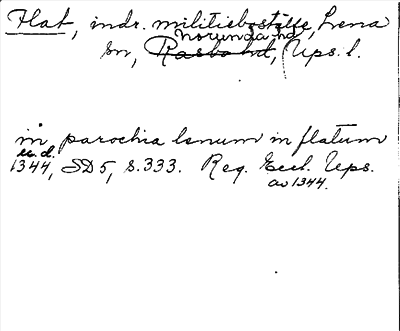 Flat, indr. militieboställe, Lena
Norunda hd
sn, Rasbo hd, Ups. l.
in parochia lenum in flatum
u.d.
1344, SD 5, s. 333. Reg. Eccl. Ups.
av 1344.